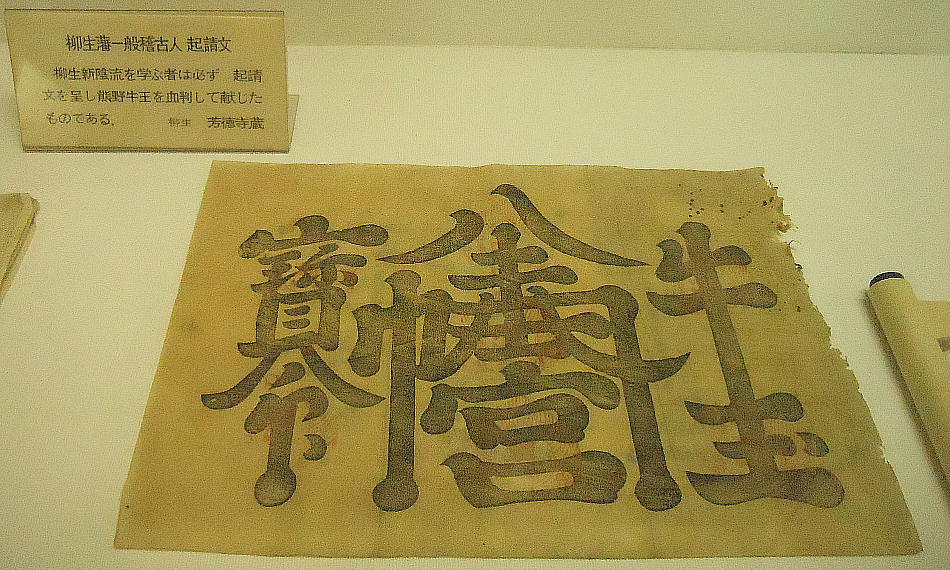 柳生藩一般稽古人 起請文
柳生新陰流を学ぶ者は必ず 起請
文を呈し熊野牛王を血判して献じた
ものである。 柳生 芳徳寺蔵
牛玉
八幡宮
寶